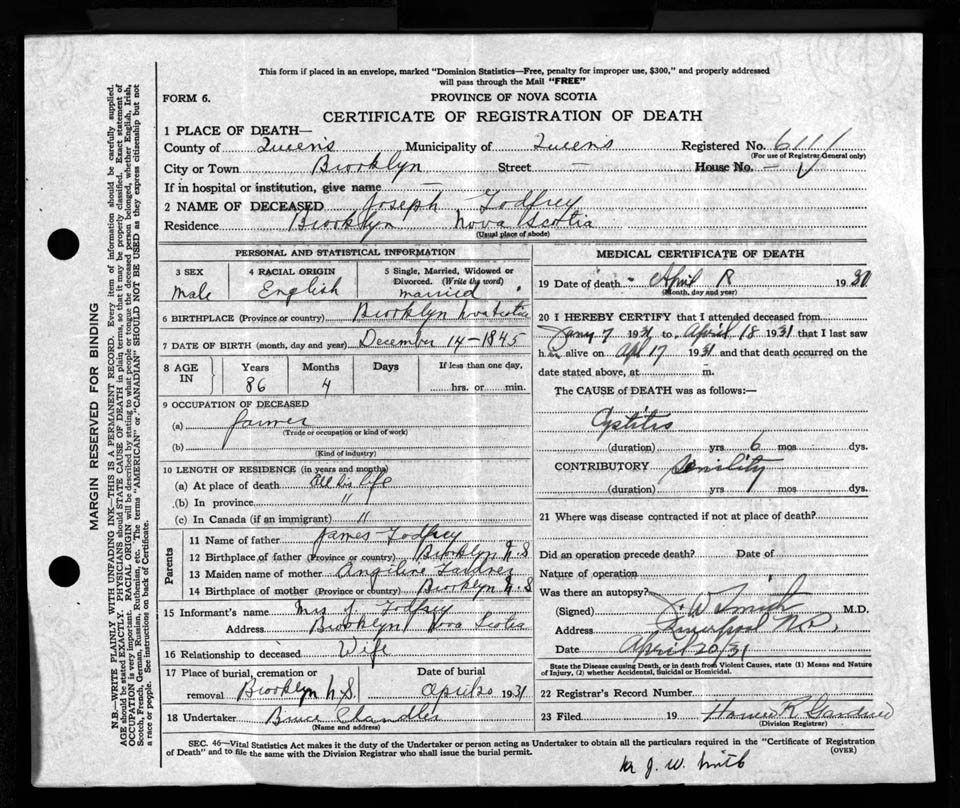 This form if placed in an envelope, marked "Dominion Statistics—Free, penalty for improper use, $300," and properly addressed
will pass through the Mail "FREE"
FORM 6.
PROVINCE OF NOVA SCOTIA
CERTIFICATE OF REGISTRATION OF DEATH
1 PLACE OF DEATH—
County of Queens Municipality of Queens Registered No. 6111
(For use of Registrar General only)
City or Town Brooklyn Street — House No. —
If in hospital or institution, give name —
2 NAME OF DECEASED Joseph Godfrey
Residence Brooklyn Nova Scotia
(Usual place of abode)
PERSONAL AND STATISTICAL INFORMATION
3 SEX
Male
4 RACIAL ORIGIN
English
5 Single, Married, Widowed or
Divorced. (Write the word)
married
6 BIRTHPLACE (Province or country) Brooklyn Nova Scotia
7 DATE OF BIRTH (month, day and year) December 14—1845
8 AGE
IN
Years
86
Months
4
Days
If less than one day,
hrs. or min.
9 OCCUPATION OF DECEASED
(a) farmer
(Trade or occupation or kind of work)
(b)
(Kind of industry)
10 LENGTH OF RESIDENCE (in years and months)
(a) At place of death all his life
(b) In province "
(c) In Canada (if an immigrant) "
Parents
11 Name of father James Godfrey
12 Birthplace of father (Province or country) Brooklyn N.S
13 Maiden name of mother Angeline
14 Birthplace of mother (Province or country) Brooklyn N.S
15 Informant's name Mrs J. Godfrey
Address Brooklyn Nova Scotia
16 Relationship to deceased Wife
17 Place of burial, cremation or
removal Brooklyn N.S.
Date of burial
April 20 1931
18 Undertaker Bruce Chandler
(Name and address)
MEDICAL CERTIFICATE OF DEATH
19 Date of death April 18 1931
(Month, day and year)
20 I HEREBY CERTIFY that I attended deceased from
Jany 7 1931 to April 18 1931 that I last saw
him alive on Apl 17 1931 and that death occurred on the
date stated above, at m.
The CAUSE of DEATH was as follows:—
Cystitis
(duration) yrs 6 mos dys.
CONTRIBUTORY Senility
(duration) yrs mos dys.
21 Where was disease contracted if not at place of death?
Did an operation precede death? Date of
Nature of operation
Was there an autopsy?
(Signed) J. W. Smith M.D.
Address Liverpool N.S.
Date April 20/31
State the Disease causing Death, or in death from Violent Causes, state (1) Means and Nature
of Injury, (2) whether Accidental, Suicidal or Homicidal.
22 Registrar's Record Number
23 Filed 19
(Division Registrar)
SEC. 46—Vital Statistics Act makes it the duty of the Undertaker or person acting as Undertaker to obtain all the particulars required in the "Certificate of Registration
of Death" and to file the same with the Division Registrar who shall issue the burial permit. (OVER)
Dr J. W. Smith
MARGIN RESERVED FOR BINDING
N.B.—WRITE PLAINLY WITH UNFADING INK—THIS IS A PERMANENT RECORD. Every item of information should be carefully supplied.
AGE should be stated EXACTLY. PHYSICIANS should STATE CAUSE OF DEATH in plain terms, so that it may be properly classified. Exact statement of
OCCUPATION is very important. RACIAL ORIGIN will be described by stating to what people or tongue the deceased person belonged, whether English, Irish,
Scotch, French, German, Russian, Ruthenian, etc. The terms "AMERICAN" or "CANADIAN" SHOULD NOT BE USED as they express citizenship but not
a race or people. See instructions on back of Certificate.